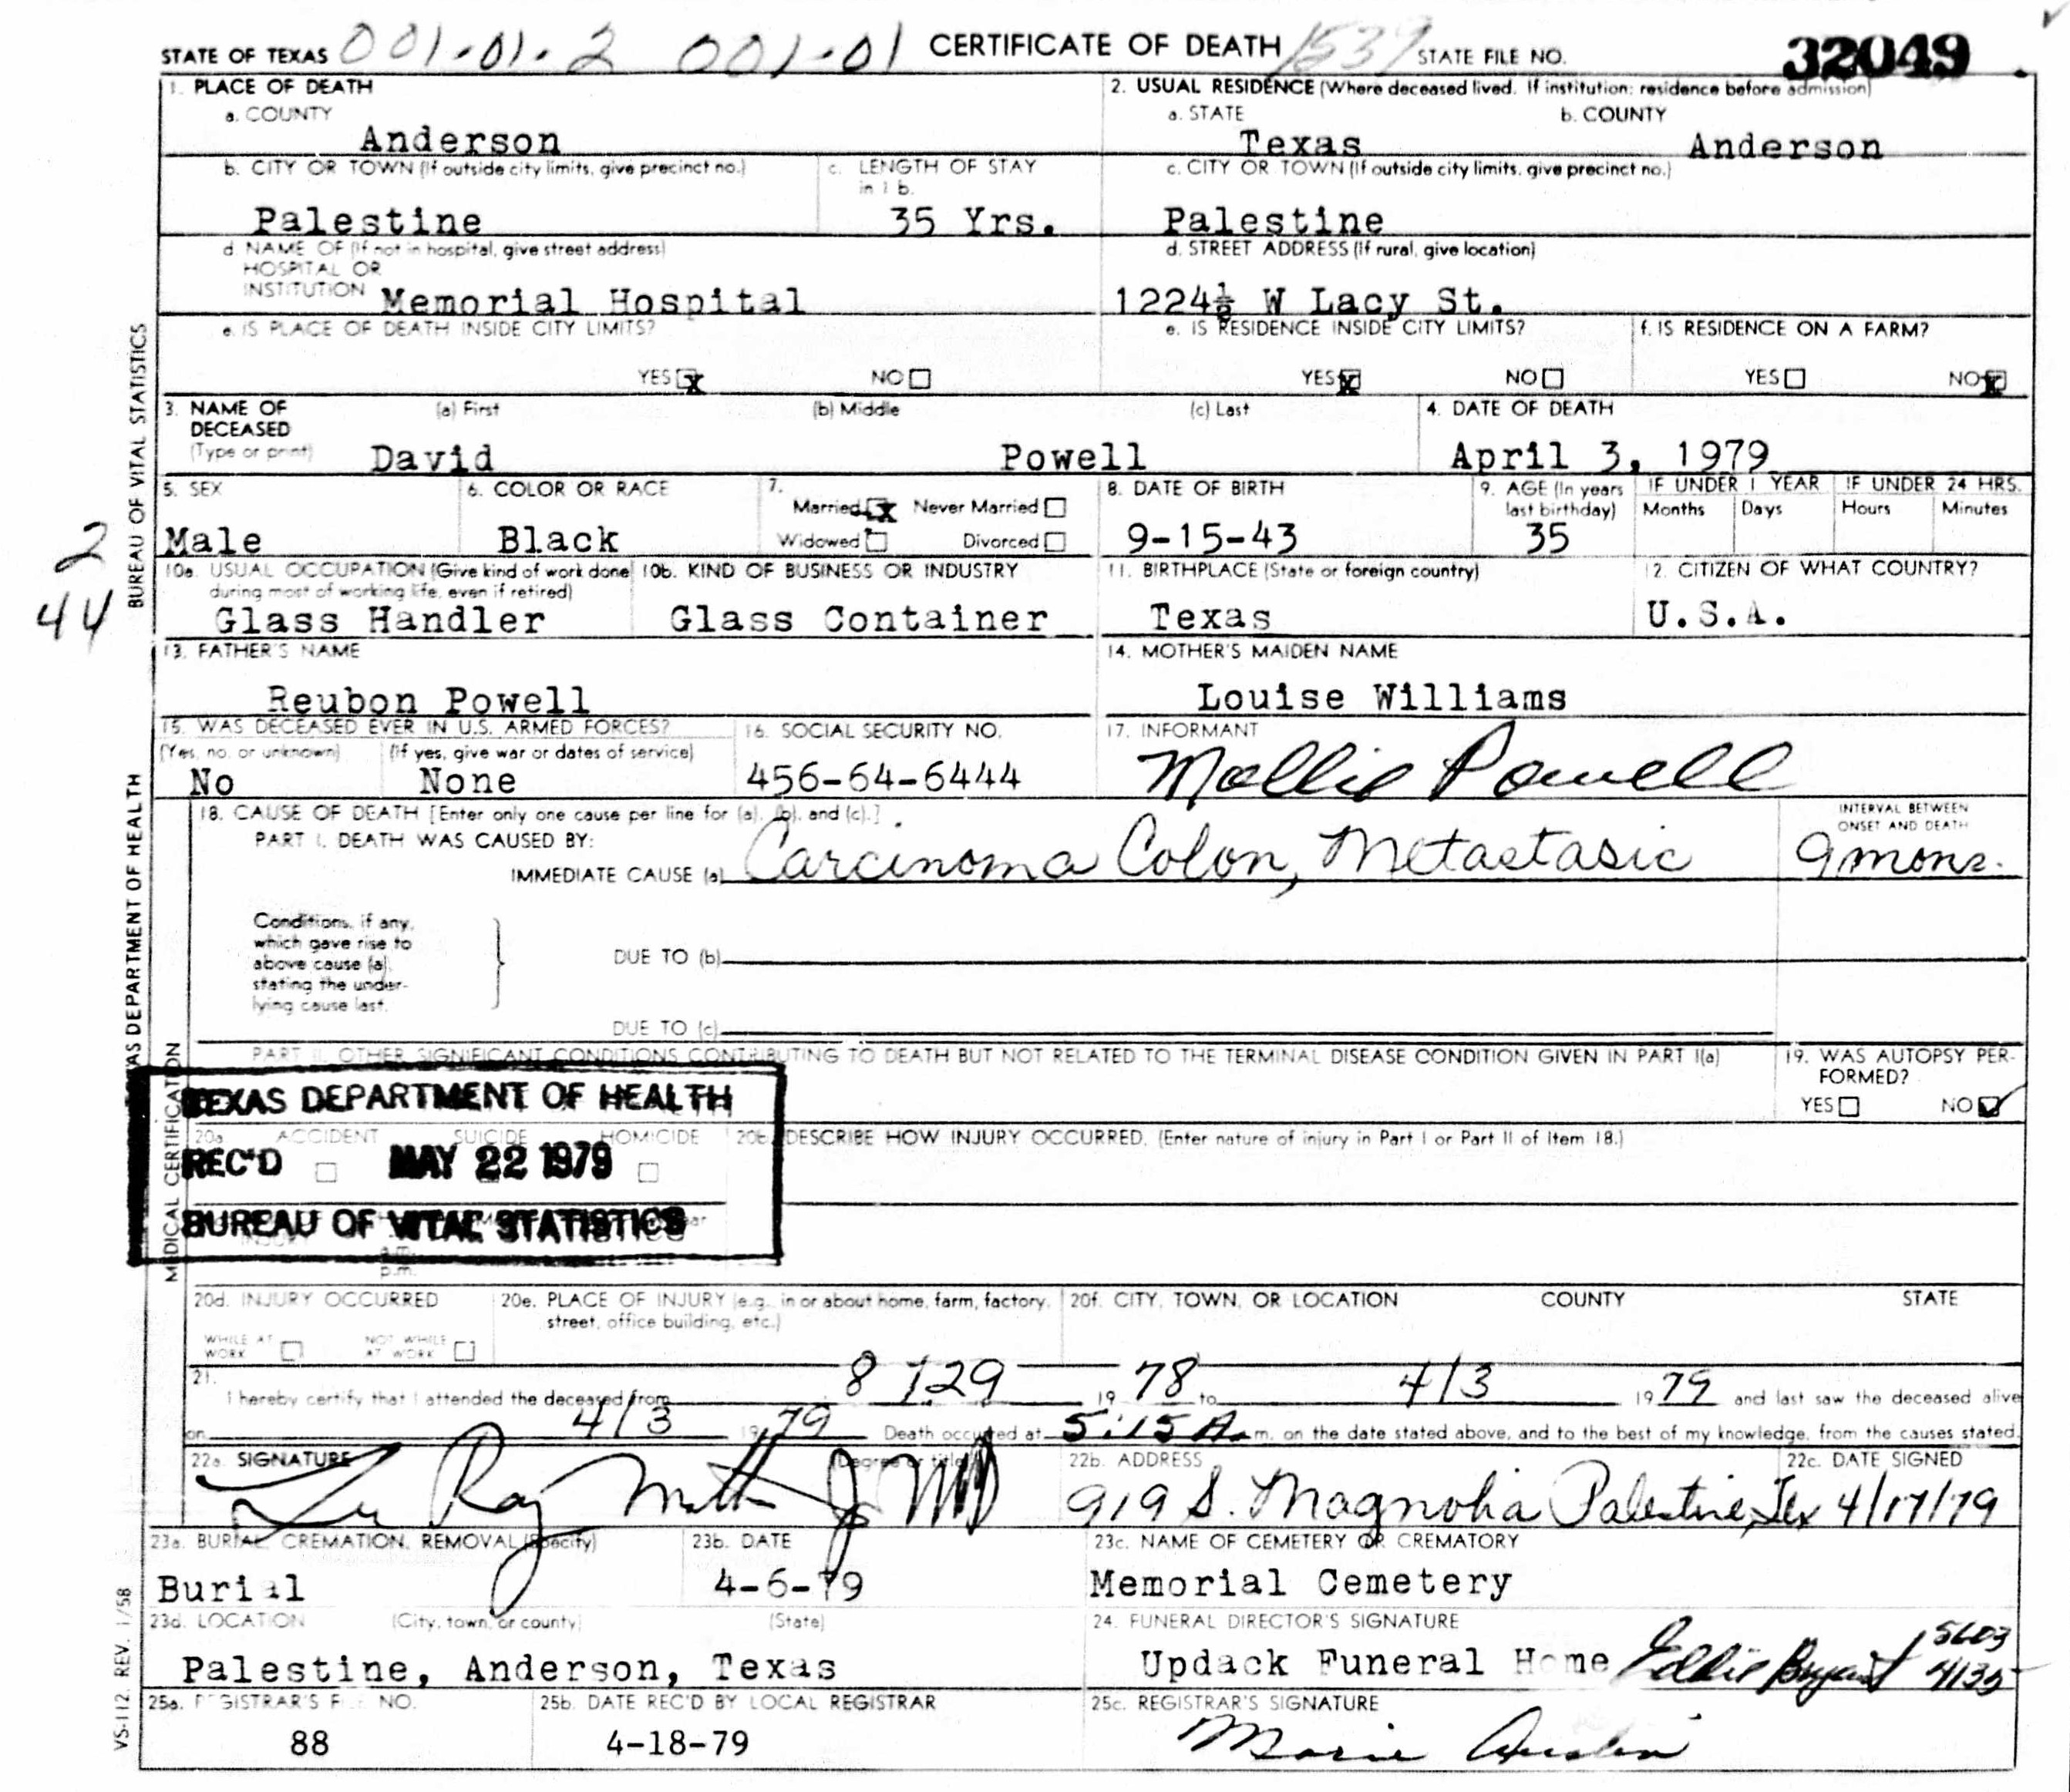 STATE OF TEXAS 001-01-2 001-01 CERTIFICATE OF DEATH 1539 STATE FILE NO. 32049
1. PLACE OF DEATH
a. COUNTY
Anderson
2. USUAL RESIDENCE (Where deceased lived. If institution: residence before admission)
a. STATE b. COUNTY
Texas Anderson
b. CITY OR TOWN (If outside city limits, give precinct no.)
Palestine
c. LENGTH OF STAY
in 1 b.
35 Yrs.
c. CITY OR TOWN (If outside city limits, give precinct no.)
Palestine
d. NAME OF (If not in hospital, give street address)
HOSPITAL OR
INSTITUTION Memorial Hospital
d. STREET ADDRESS (If rural, give location)
1224½ W Lacy St.
e. IS PLACE OF DEATH INSIDE CITY LIMITS?
YES x NO
e. IS RESIDENCE INSIDE CITY LIMITS?
YES x NO
f. IS RESIDENCE ON A FARM?
YES NO x
3. NAME OF
DECEASED
(Type or print)
(a) First (b) Middle (c) Last
David Powell
4. DATE OF DEATH
April 3, 1979
5. SEX
Male
6. COLOR OR RACE
Black
7.
Married x Never Married
Widowed Divorced
8. DATE OF BIRTH
9-15-43
9. AGE (In years
last birthday)
35
IF UNDER 1 YEAR
Months Days
IF UNDER 24 HRS.
Hours Minutes
10a. USUAL OCCUPATION (Give kind of work done
during most of working life, even if retired)
Glass Handler
10b. KIND OF BUSINESS OR INDUSTRY
Glass Container
11. BIRTHPLACE (State or foreign country)
Texas
12. CITIZEN OF WHAT COUNTRY?
U.S.A.
13. FATHER'S NAME
Reubon Powell
14. MOTHER'S MAIDEN NAME
Louise Williams
15. WAS DECEASED EVER IN U.S. ARMED FORCES?
(Yes, no, or unknown) (If yes, give war or dates of service)
No None
16. SOCIAL SECURITY NO.
456-64-6444
17. INFORMANT
Mollie Powell
18. CAUSE OF DEATH [Enter only one cause per line for (a), (b), and (c).]
PART I. DEATH WAS CAUSED BY:
IMMEDIATE CAUSE (a) Carcinoma Colon, Metastasic
INTERVAL BETWEEN
ONSET AND DEATH
9 mons.
Conditions, if any,
which gave rise to
above cause (a),
stating the under-
lying cause last.
DUE TO (b)
DUE TO (c)
PART II. OTHER SIGNIFICANT CONDITIONS CONTRIBUTING TO DEATH BUT NOT RELATED TO THE TERMINAL DISEASE CONDITION GIVEN IN PART I(a)
19. WAS AUTOPSY PER-
FORMED?
YES NO ✓
TEXAS DEPARTMENT OF HEALTH
REC'D MAY 22 1979
BUREAU OF VITAL STATISTICS
20a ACCIDENT SUICIDE HOMICIDE
20b. DESCRIBE HOW INJURY OCCURRED. (Enter nature of injury in Part I or Part II of Item 18.)
a.m.
p.m.
20d. INJURY OCCURRED
WHILE AT
WORK
NOT WHILE
AT WORK
20e. PLACE OF INJURY (e.g., in or about home, farm, factory,
street, office building, etc.)
20f. CITY, TOWN, OR LOCATION COUNTY STATE
21.
I hereby certify that I attended the deceased from 8/29 1978 to 4/3 1979 and last saw the deceased alive
on 4/3 1979 Death occurred at 5:15 A. m. on the date stated above, and to the best of my knowledge, from the causes stated.
22a. SIGNATURE (Degree or title)
MD
22b. ADDRESS
919 S. Magnolia Palestine, Tex
22c. DATE SIGNED
4/17/79
23a. BURIAL, CREMATION, REMOVAL (Specify)
Burial
23b. DATE
4-6-79
23c. NAME OF CEMETERY OR CREMATORY
Memorial Cemetery
23d. LOCATION (City, town, or county) (State)
Palestine, Anderson, Texas
24. FUNERAL DIRECTOR'S SIGNATURE
Updack Funeral Home Eddie Bryant 5603
4135
25a. REGISTRAR'S FILE NO.
88
25b. DATE REC'D BY LOCAL REGISTRAR
4-18-79
25c. REGISTRAR'S SIGNATURE
Marie Austin
BUREAU OF VITAL STATISTICS
2
44
TEXAS DEPARTMENT OF HEALTH
MEDICAL CERTIFICATION
VS-112, REV. 1/58